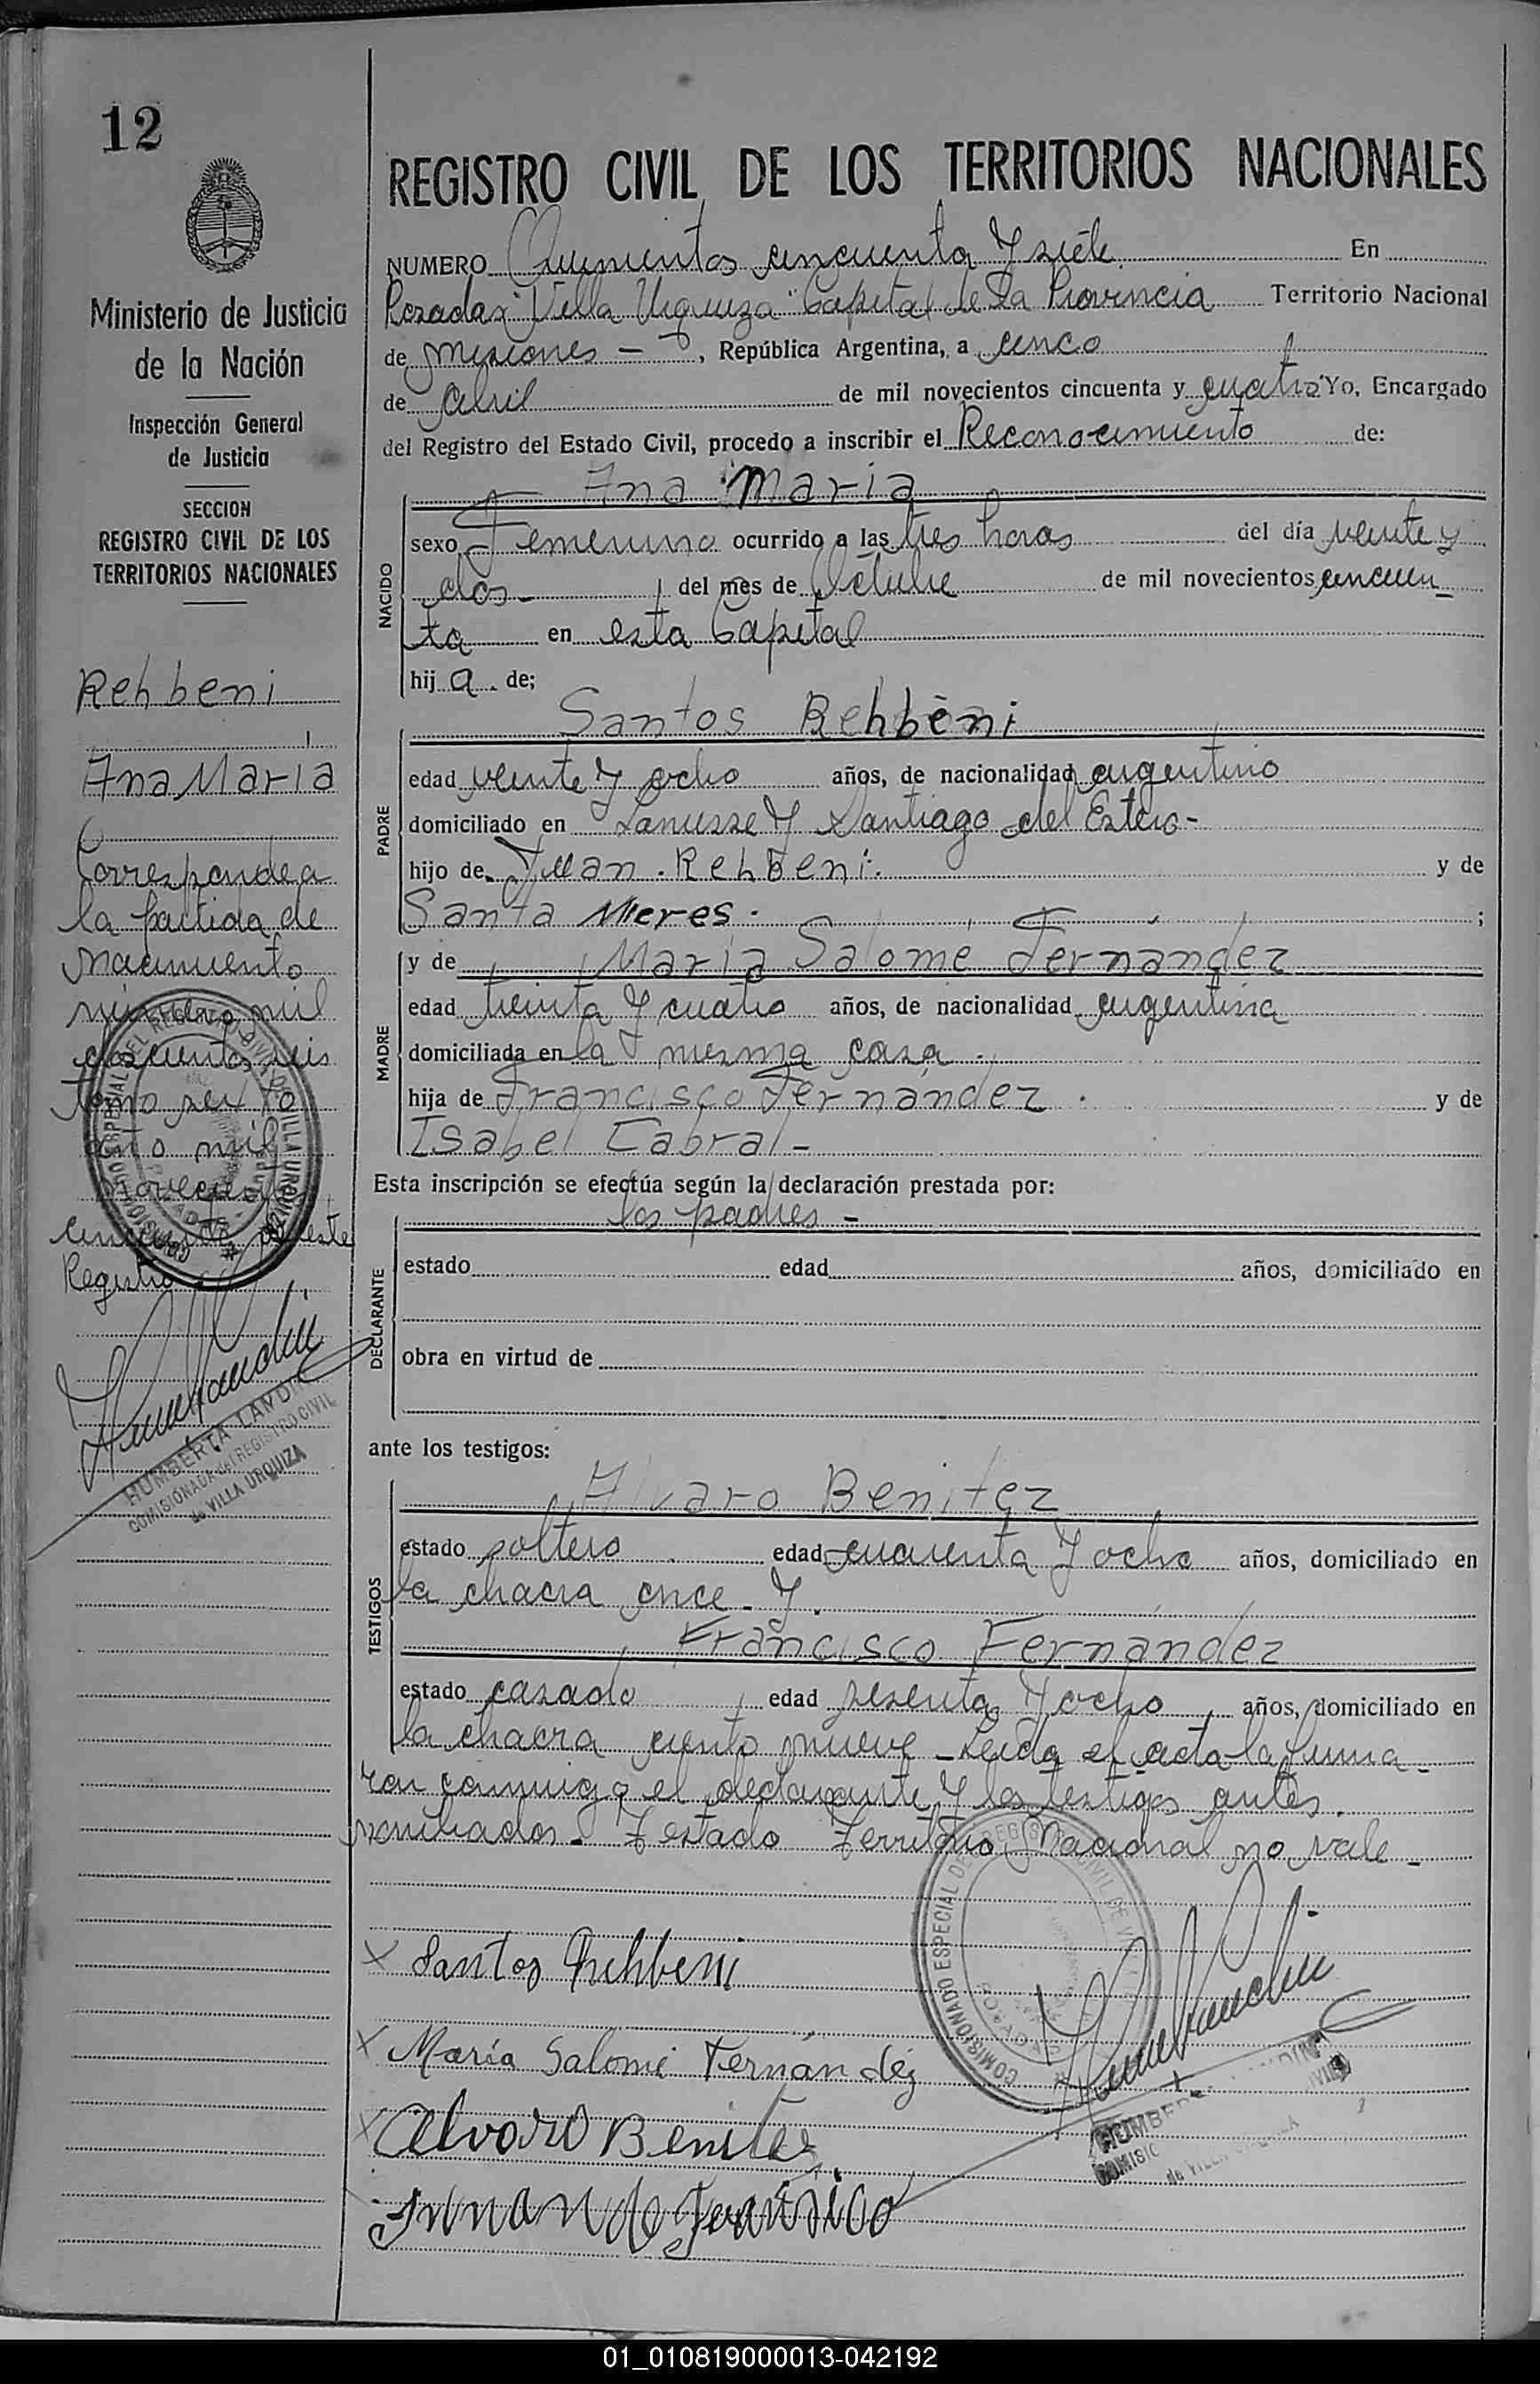 12
Ministerio de Justicia
de la Nación
Inspección General
de Justicia
SECCION
REGISTRO CIVIL DE LOS
TERRITORIOS NACIONALES
Rehbeni
Ana María
Corresponde a
la partida de
nacimiento
número mil
doscientos seis
Tomo sexto
año mil
novecientos
cincuenta de este
Registro
HUMBERTA LANDIN
COMISIONADA del REGISTRO CIVIL
de VILLA URQUIZA
REGISTRO CIVIL DE LOS TERRITORIOS NACIONALES
NUMERO Quinientos cincuenta y siete En
Posadas "Villa Urquiza" Capital de la Provincia Territorio Nacional
de Misiones - , República Argentina, a cinco
de abril de mil novecientos cincuenta y cuatro Yo, Encargado
del Registro del Estado Civil, procedo a inscribir el Reconocimiento de:
Ana María
NACIDO
sexo Femenino ocurrido a las tres horas del día veinte y
dos - del mes de Octubre de mil novecientos cincuen
ta en esta Capital
hij a de;
Santos Rehbeni
PADRE
edad veinte y ocho años, de nacionalidad argentino
domiciliado en Lanusse y Santiago del Estero -
hijo de Juan Rehbeni y de
Santa Mieres ;
y de María Salomé Fernández
MADRE
edad treinta y cuatro años, de nacionalidad argentina
domiciliada en la misma casa
hija de Francisco Fernández y de
Isabel Cabral -
Esta inscripción se efectúa según la declaración prestada por:
los padres -
DECLARANTE
estado edad años, domiciliado en
obra en virtud de
ante los testigos:
Alvaro Benitez
TESTIGOS
estado soltero edad cuarenta y ocho años, domiciliado en
la chacra once - y
Francisco Fernández
estado casado edad sesenta y ocho años, domiciliado en
la chacra ciento nueve - Leída el acta la firma
ron conmigo el declarante y los testigos antes
nombrados - Testado Territorio Nacional no vale -
x Santos Rehbeni
x María Salomé Fernández
x Alvaro Benitez
COMISIONADO ESPECIAL DEL REGISTRO CIVIL DE VILLA
POSADAS
01_010819000013-042192